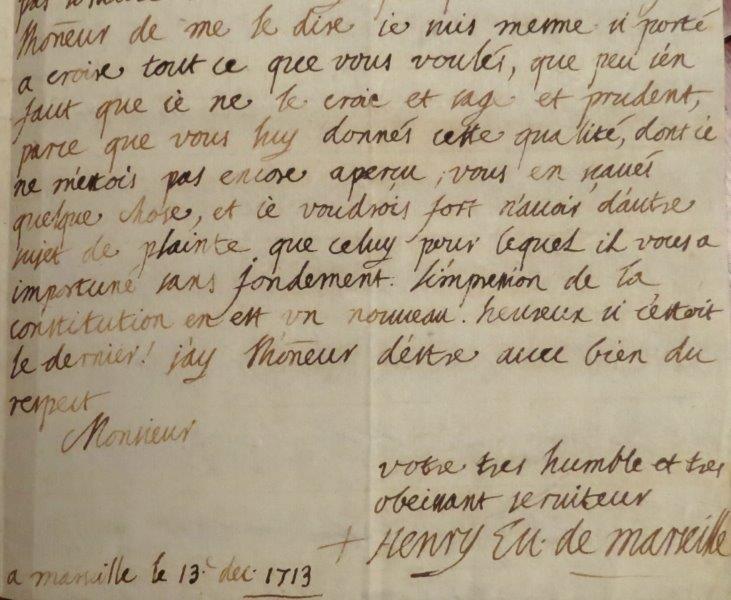 lhoñeur de me le dire ie suis mesme si porté
a croire tout ce que vous voulés, que peu s'en
faut que ie ne le croie et sage et prudent,
parce que vous luy donnés cette qualité, dont ie
ne m'estois pas encore aperçu, vous en sçaués
quelque chose, et ie voudrois fort n'auoir d'autre
sujet de plainte que celuy pour lequel il vous a
importuné sans fondement. l'impression de la
constitution en est vn nouueau. heureux si c'estoit
le dernier! j'ay lhoñeur d'éstre auec bien du
respect
Monsieur
votre tres humble et tres
obeissant seruiteur
+ Henry Eu. de marseille
a marseille le 13. dec. 1713